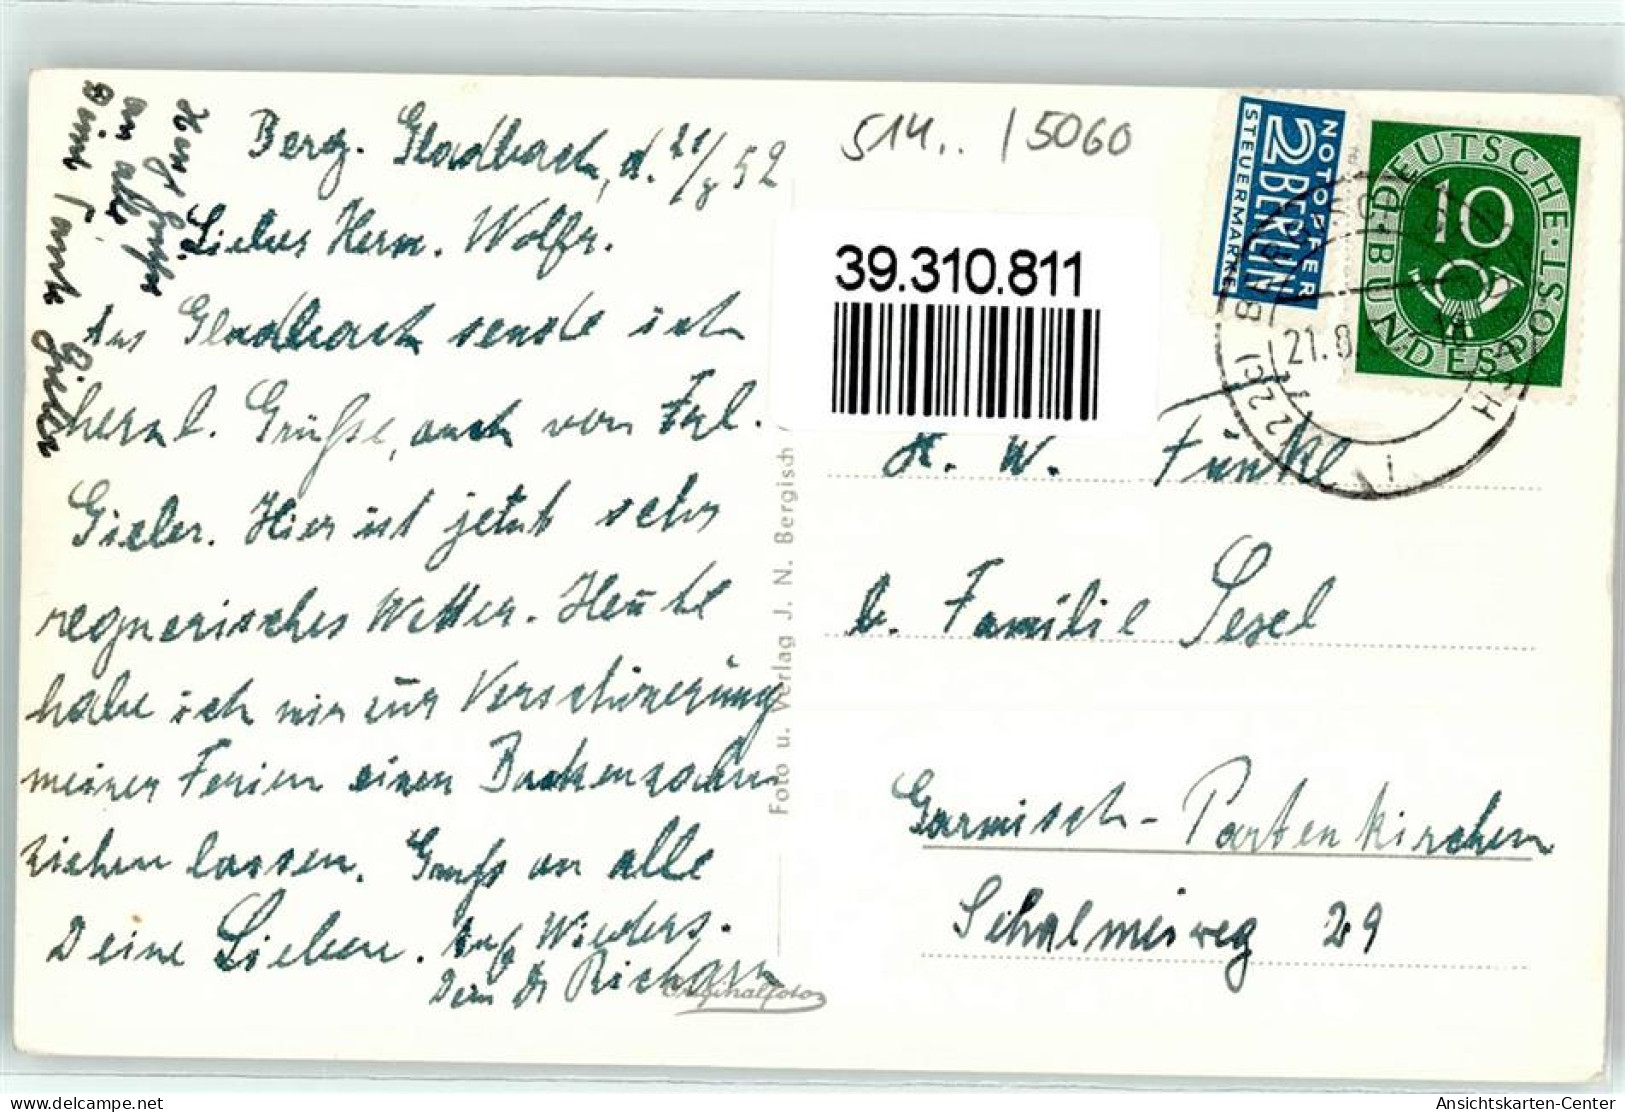 Berg. Gladbach, d. 21/8 52
Liebes Herm. Wölfr.
Aus Gladbach sende ich
herzl. Grüße, auch von Frl.
Gieler. Hier ist jetzt sehr
regnerisches Wetter. Heute
habe ich mir zur Verschönerung
meiner Ferien einen Backenzahn
ziehen lassen. Gruß an alle
Deine Lieben. Auf Wieders.
Dein Dr Richarz
Herzl Grüße
an alle
Deine Tante
514.. / 5060
39.310.811
NOTOPFER
2 BERLIN
STEUERMARKE
DEUTSCHE BUNDESPOST
10
(22c) BERGISCH
21.8.
H. W. Fünkl
b. Familie Sesel
Garmisch-Partenkirchen
Schalmeiweg 29
Foto u. Verlag J. N. Bergisch
Originalfoto
Ansichtskarten-Center